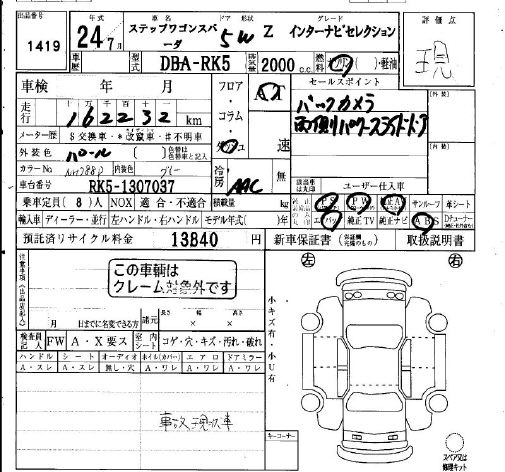 出品番号 年式 車名 ドア 形状 グレード 評価点
1419 24年7月 ステップワゴンスパーダ 5W Z インターナビセレクション 現
車歴 型式 DBA-RK5 排気量 2000 c.c. 燃料 ガソリン・軽油
車検 年 月 フロア・コラム・ AT セールスポイント
走行 十万 万 千 百 十 一
162232 km
バックカメラ
両側パワースライドドア
メーター歴 $交換車・*改竄車・#不明車
外装色 パール 〔 〕 色替は色替車と記入 速
カラーNo NH788P 内装色
冷房 AAC 無 ユーザー仕入車
車台番号 RK5-1307037
乗車定員(8)人 NOX 適合・不適合 積載量 kg PS PW サンルーフ 革シート
輸入車 ディーラー・並行 左ハンドル・右ハンドル モデル年式( )年 エアバッグ 純正TV 純正ナビ ABS
預託済リサイクル料金 13840 円 新車保証書 取扱説明書
注意事項(出品店記入)
この車輌は
クレーム対象外です
左 右
小キズ有・小U有
月 日までに名変できる方 諸元 長さ 幅 高さ × ×
検査員記入 FW A・X要ス 室内シート コゲ・穴・キズ・汚れ・破れ
ハンドル シート オーディオ ホイル(カバー) エアロ ドアミラー
A・スレ A・スレ 無し・穴 A・ワレ A・ワレ A・ワレ
事故現状車
キーコーナー
スペア又は
修理キット